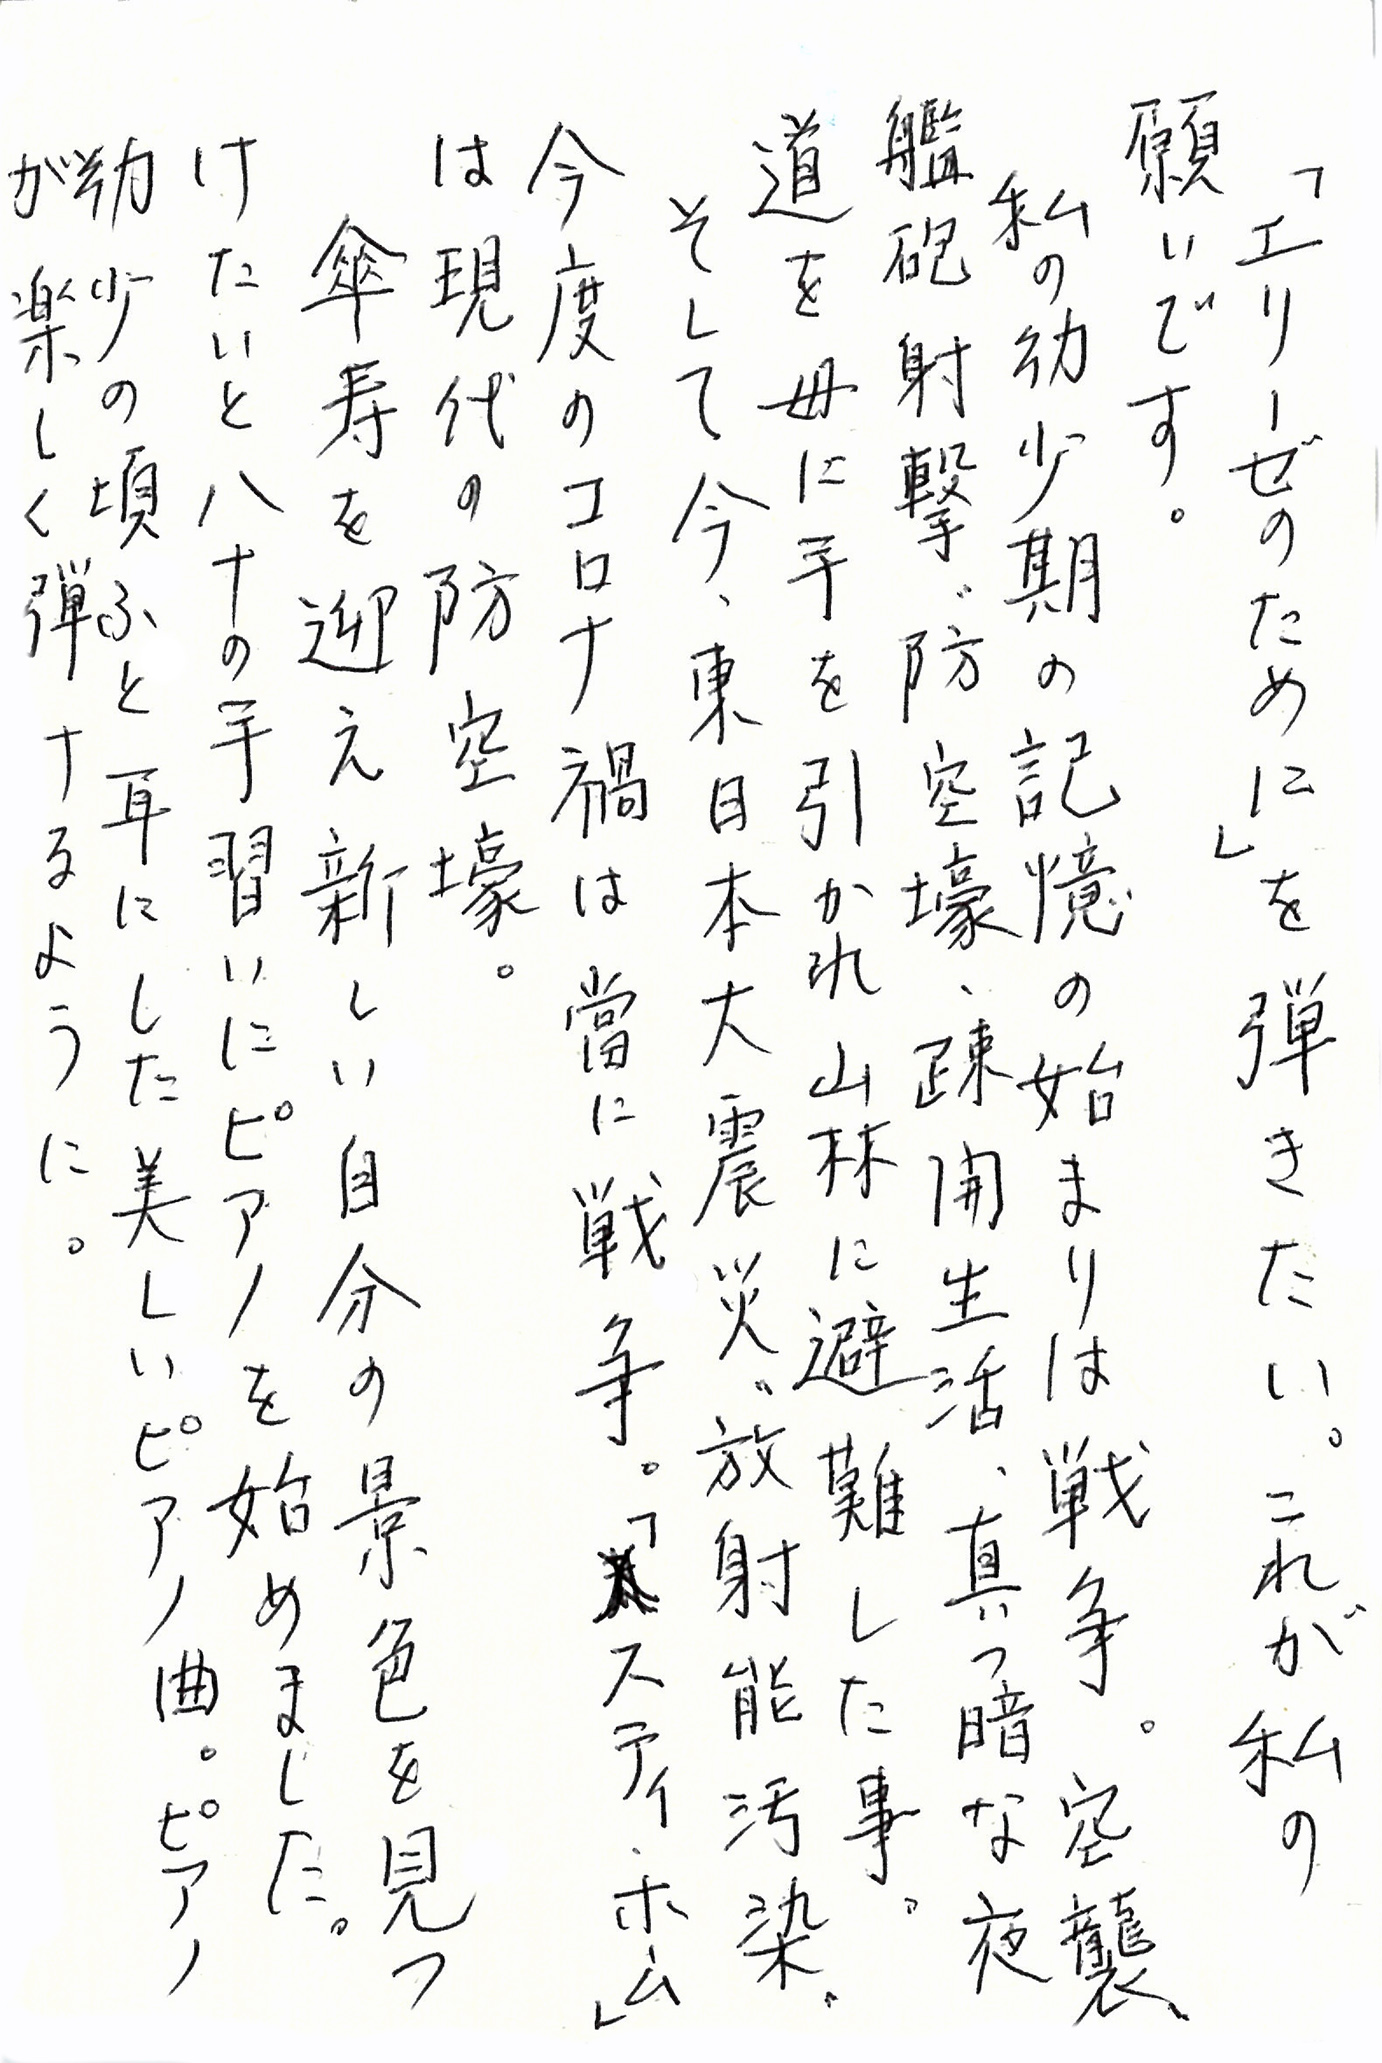 「エリーゼのために」を弾きたい。これが私の
願いです。
私の幼少期の記憶の始まりは戦争。空襲、
艦砲射撃、防空壕、疎開生活、真っ暗な夜
道を母に手を引かれ山林に避難した事。
そして今、東日本大震災、放射能汚染。
今度のコロナ禍は當に戦争。「スティ・ホーム」
は現代の防空壕。
傘寿を迎え新しい自分の景色を見つ
けたいと八十の手習いにピアノを始めました。
幼少の頃ふと耳にした美しいピアノ曲。ピアノ
が楽しく弾けるように。